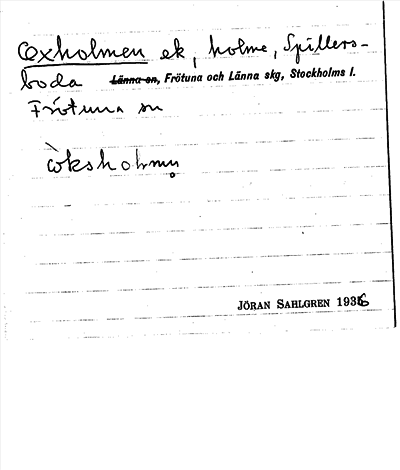 Oxholmen ek, holme, Spillers-
boda Länna sn, Frötuna och Länna skg, Stockholms l.
Frötuna sn
òksholmn̥
JÖRAN SAHLGREN 1936